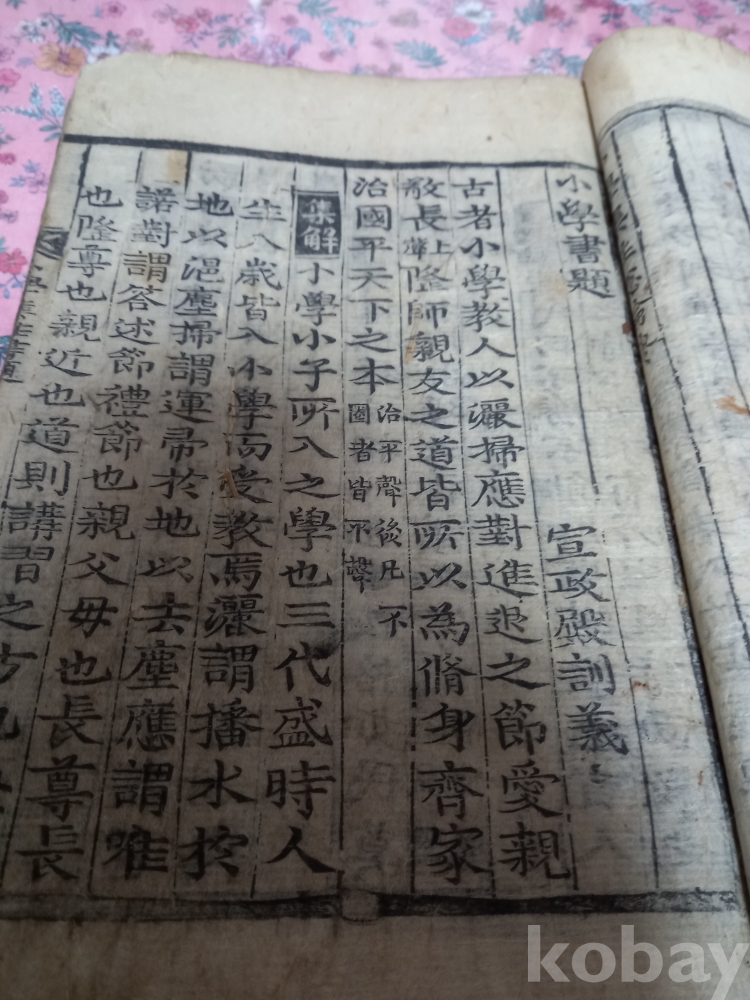 小學書題
宣政殿訓義
古者小學教人以灑掃應對進退之節愛親
敬長上聲隆師親友之道皆所以為脩身齊家
治國平天下之本治平聲後凡不圈者皆平聲
集解小學小子所入之學也三代盛時人
生八歲皆入小學而受教焉灑謂播水於
地以浥塵掃謂運帚於地以去塵應謂唯
諾對謂答述節禮節也親父母也長尊長
也隆尊也親近也道則講習之方也
kobay